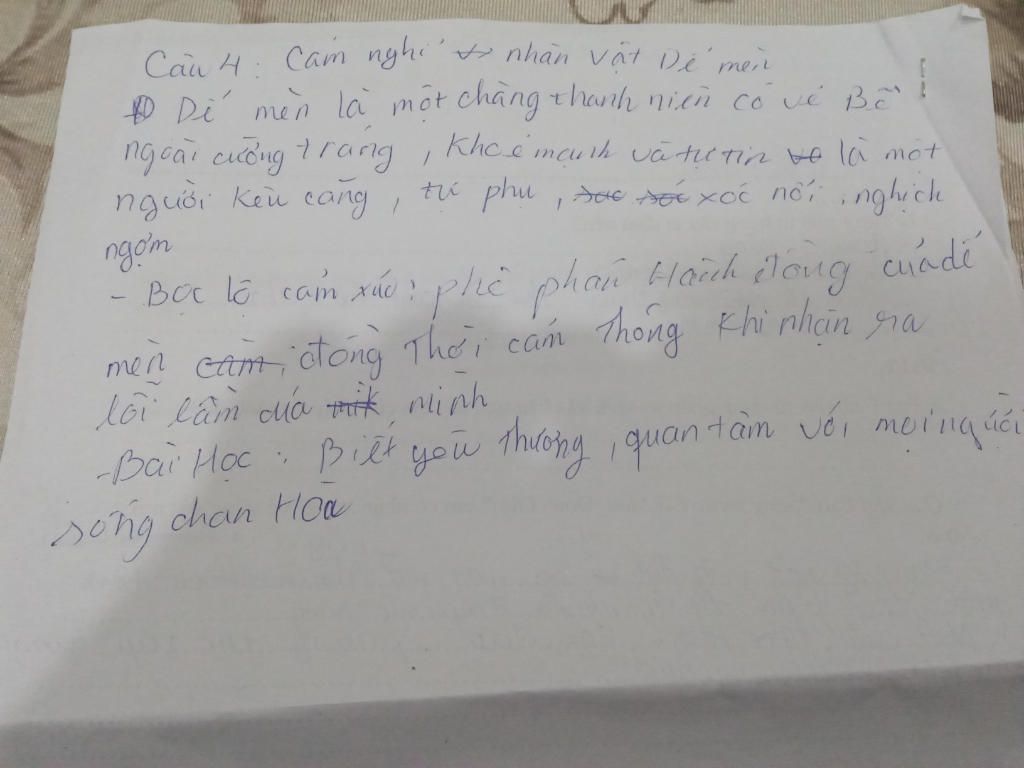 Câu 4: Cảm nghĩ nhân vật Dế mèn
Dế mèn là một chàng thanh niên có vẻ Bề
ngoài cường tráng, Khoẻ mạnh và tự tin là một
người Kêu căng, tự phụ, xốc nổi, nghịch
ngợm
- Bọc lộ cảm xúc: phê phán Hành động của dế
mèn, đồng Thời cảm Thông Khi nhận ra
lỗi lầm của mình
- Bài Học: Biết yêu Thương, quan tâm với mọi người
sống chan Hoà